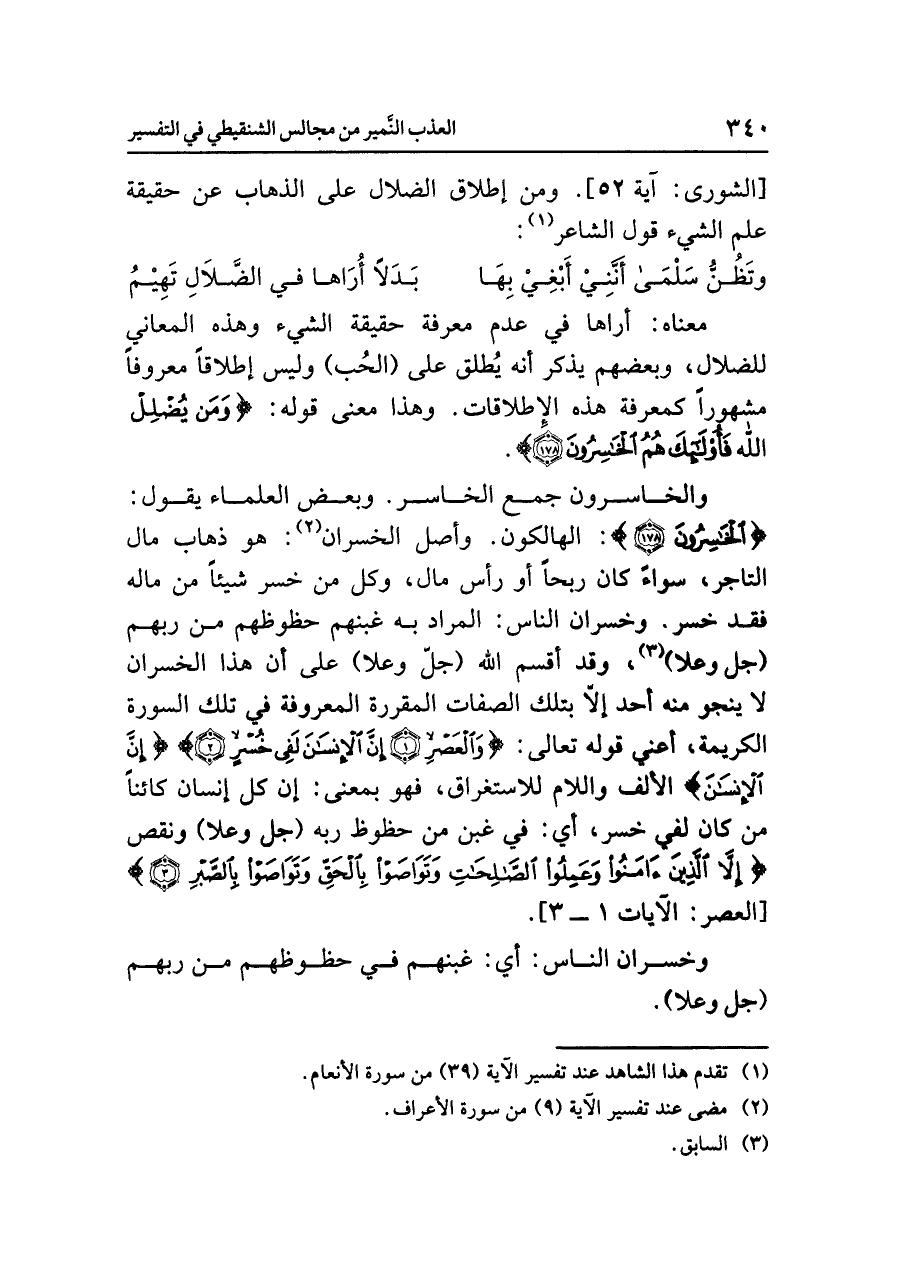 ٣٤٠ العذب النَّمير من مجالس الشنقيطي في التفسير
[الشورى: آية ٥٢]. ومن إطلاق الضلال على الذهاب عن حقيقة
علم الشيء قول الشاعر(١):
وتَظُنُّ سَلْمَىٰ أَنَّنِيْ أَبْغِيْ بِهَا بَدَلاً أُرَاهـا فـي الضَّلَالِ تَهِيْمُ
معناه: أراها في عدم معرفة حقيقة الشيء وهذه المعاني
للضلال، وبعضهم يذكر أنه يُطلق على (الحُب) وليس إطلاقاً معروفاً
مشهوراً كمعرفة هذه الإطلاقات. وهذا معنى قوله: ﴿وَمَن يُضْلِلْ
الله فَأُوْلَٰٓئِكَ هُمُ ٱلْخَٰسِرُونَ ١٧٨﴾.
والخاسرون جمع الخاسر. وبعض العلماء يقول:
﴿ٱلْخَٰسِرُونَ ١٧٨﴾: الهالكون. وأصل الخسران(٢): هو ذهاب مال
التاجر، سواءً كان ربحاً أو رأس مال، وكل من خسر شيئاً من ماله
فقد خسر. وخسران الناس: المراد به غبنهم حظوظهم من ربهم
(جل وعلا)(٣)، وقد أقسم الله (جلّ وعلا) على أن هذا الخسران
لا ينجو منه أحد إلاّ بتلك الصفات المقررة المعروفة في تلك السورة
الكريمة، أعني قوله تعالى: ﴿وَٱلْعَصْرِ ١ إِنَّ ٱلْإِنسَٰنَ لَفِى خُسْرٍ ٢﴾ ﴿إِنَّ
ٱلْإِنسَٰنَ﴾ الألف واللام للاستغراق، فهو بمعنى: إن كل إنسان كائناً
من كان لفي خسر، أي: في غبن من حظوظ ربه (جل وعلا) ونقص
﴿إِلَّا ٱلَّذِينَ ءَامَنُواْ وَعَمِلُواْ ٱلصَّٰلِحَٰتِ وَتَوَاصَوْاْ بِٱلْحَقِّ وَتَوَاصَوْاْ بِٱلصَّبْرِ ٣﴾
[العصر: الآيات ١ – ٣].
وخسران الناس: أي: غبنهم في حظوظهم من ربهم
(جل وعلا).
(١) تقدم هذا الشاهد عند تفسير الآية (٣٩) من سورة الأنعام.
(٢) مضى عند تفسير الآية (٩) من سورة الأعراف.
(٣) السابق.